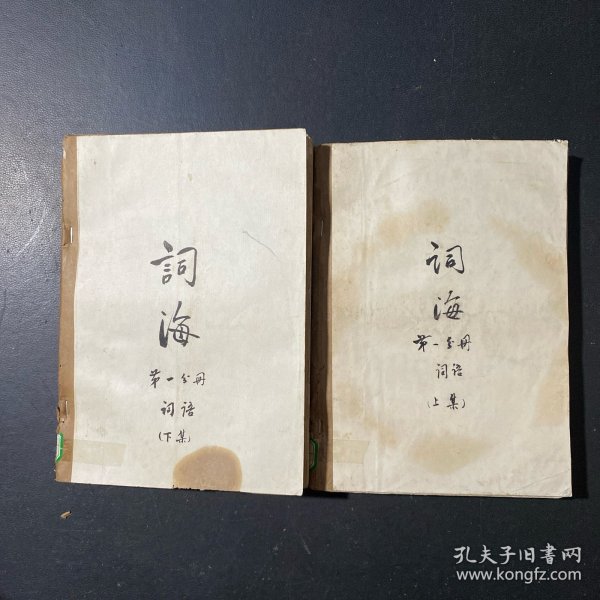 詞
海
第一分册
词语
(下集)
词
海
第一分册
词语
(上集)
孔夫子旧书网
www.kongfz.com